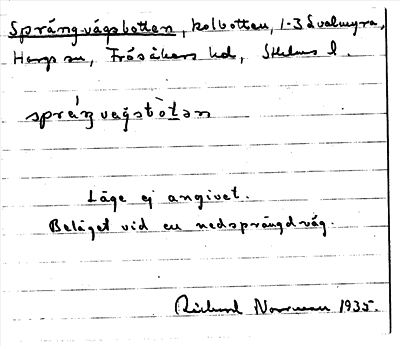 Sprängvägsbotten, kolbotten, 1-3 Svalmyra,
Hargs sn, Frösåkers hd, Sthlms l.
spräŋvägsbòtən
Läge ej angivet.
Beläget vid en nedsprängd väg.
Rickard Norrman 1935.